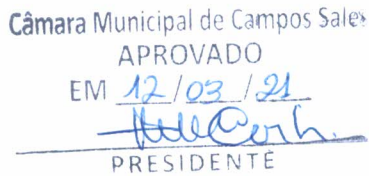 Câmara Municipal de Campos Sales
APROVADO
EM 12/03/21
PRESIDENTE